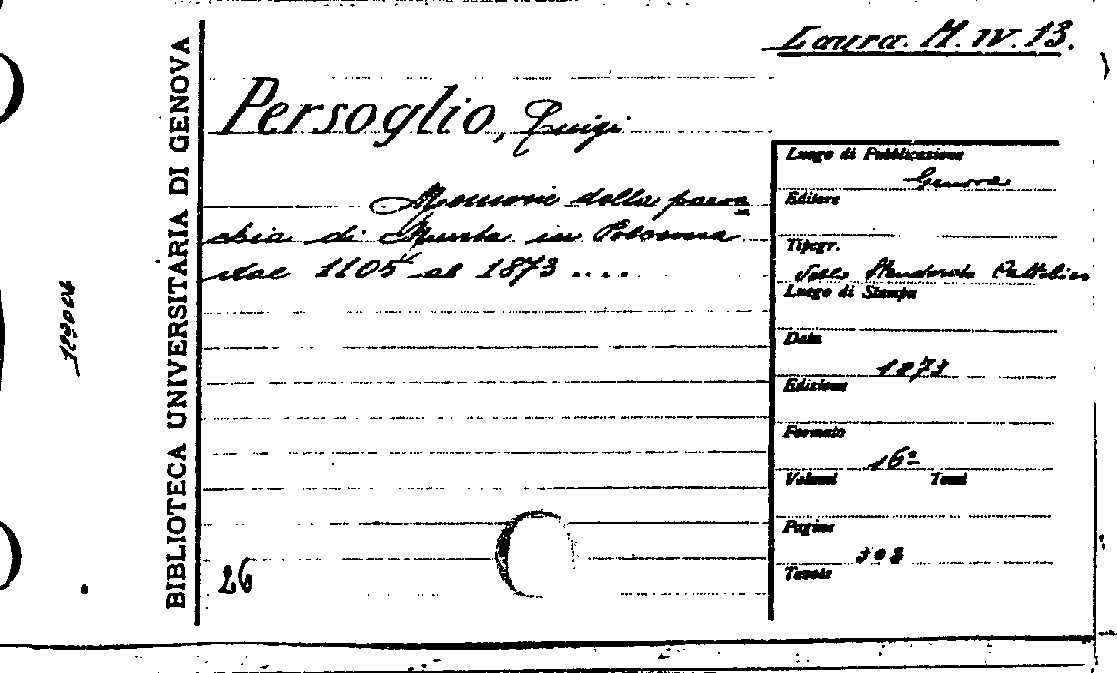 Laura. M. IV. 13.
BIBLIOTECA UNIVERSITARIA DI GENOVA
Persoglio, Luigi
Memorie della parro
chia di Murta in Polcevera
dal 1105 al 1873 ....
26
Luogo di Pubblicazione
Genova
Editore
Tipogr.
Luogo di Stampa
Data
1873
Edizione
Formato
16º
Volumi Tomi
Pagine
Tavole